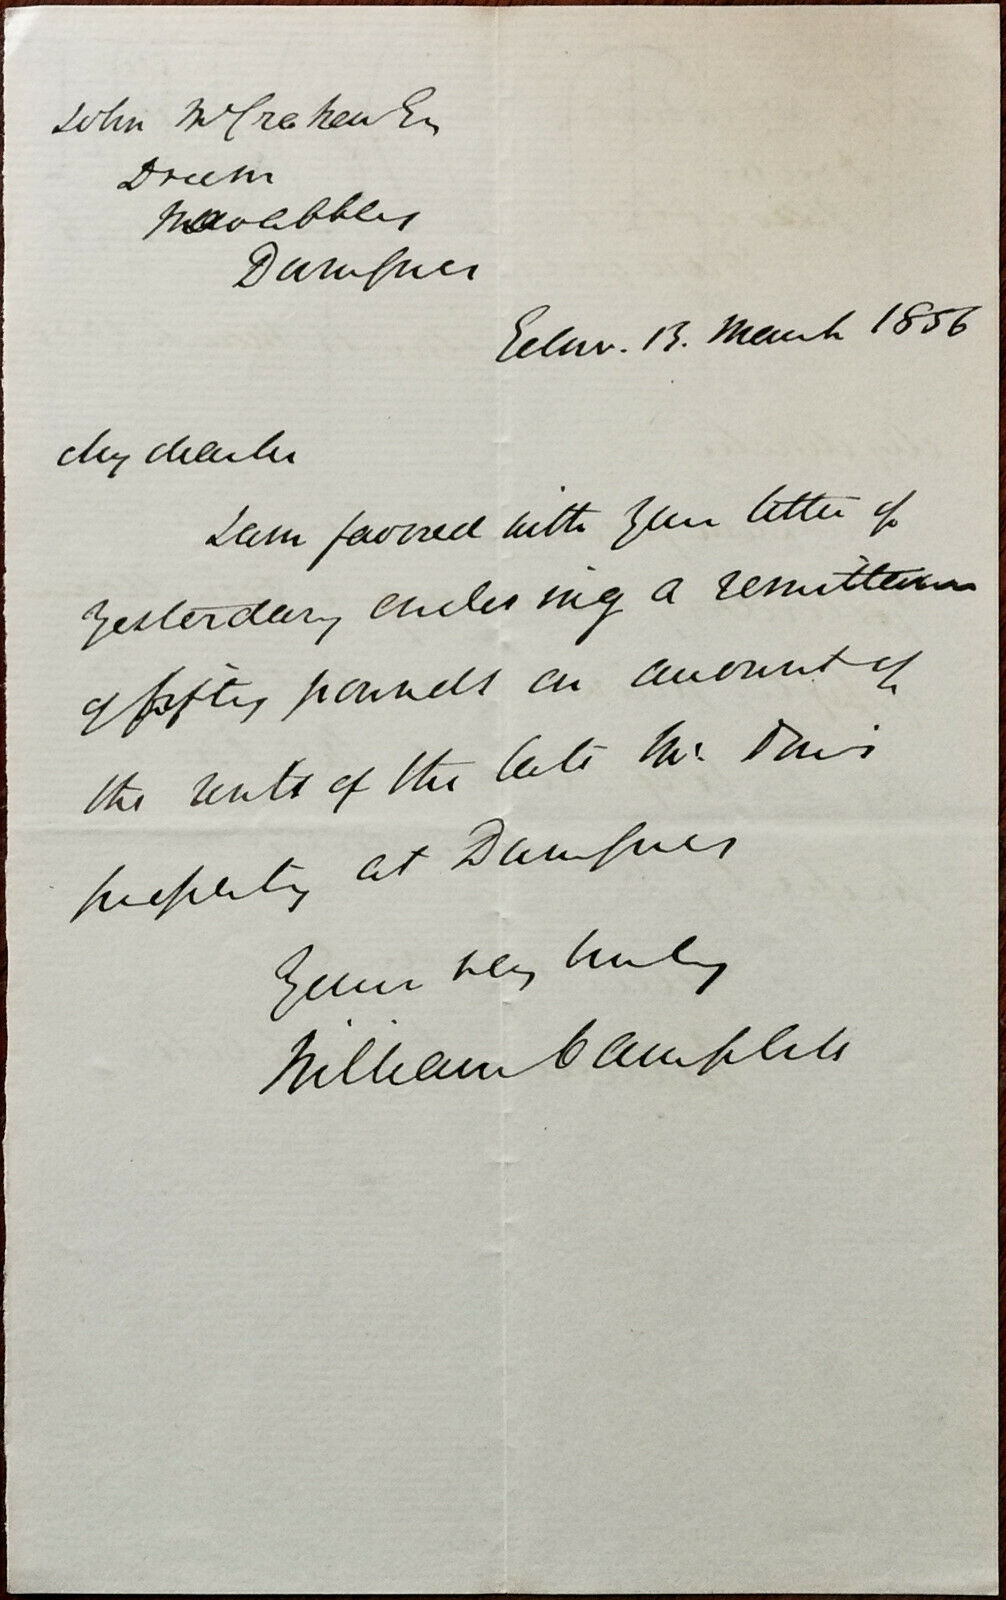 John McCracken Esq
Drum
Newabbey
Dumfries
Edinr. 13. March 1856
My dear Sir
I am favored with your letter of
yesterday enclosing a remittance
of fifty pounds on account of
the rents of the late Mr.
property at Dumfries
Yours very truly
William Campbell